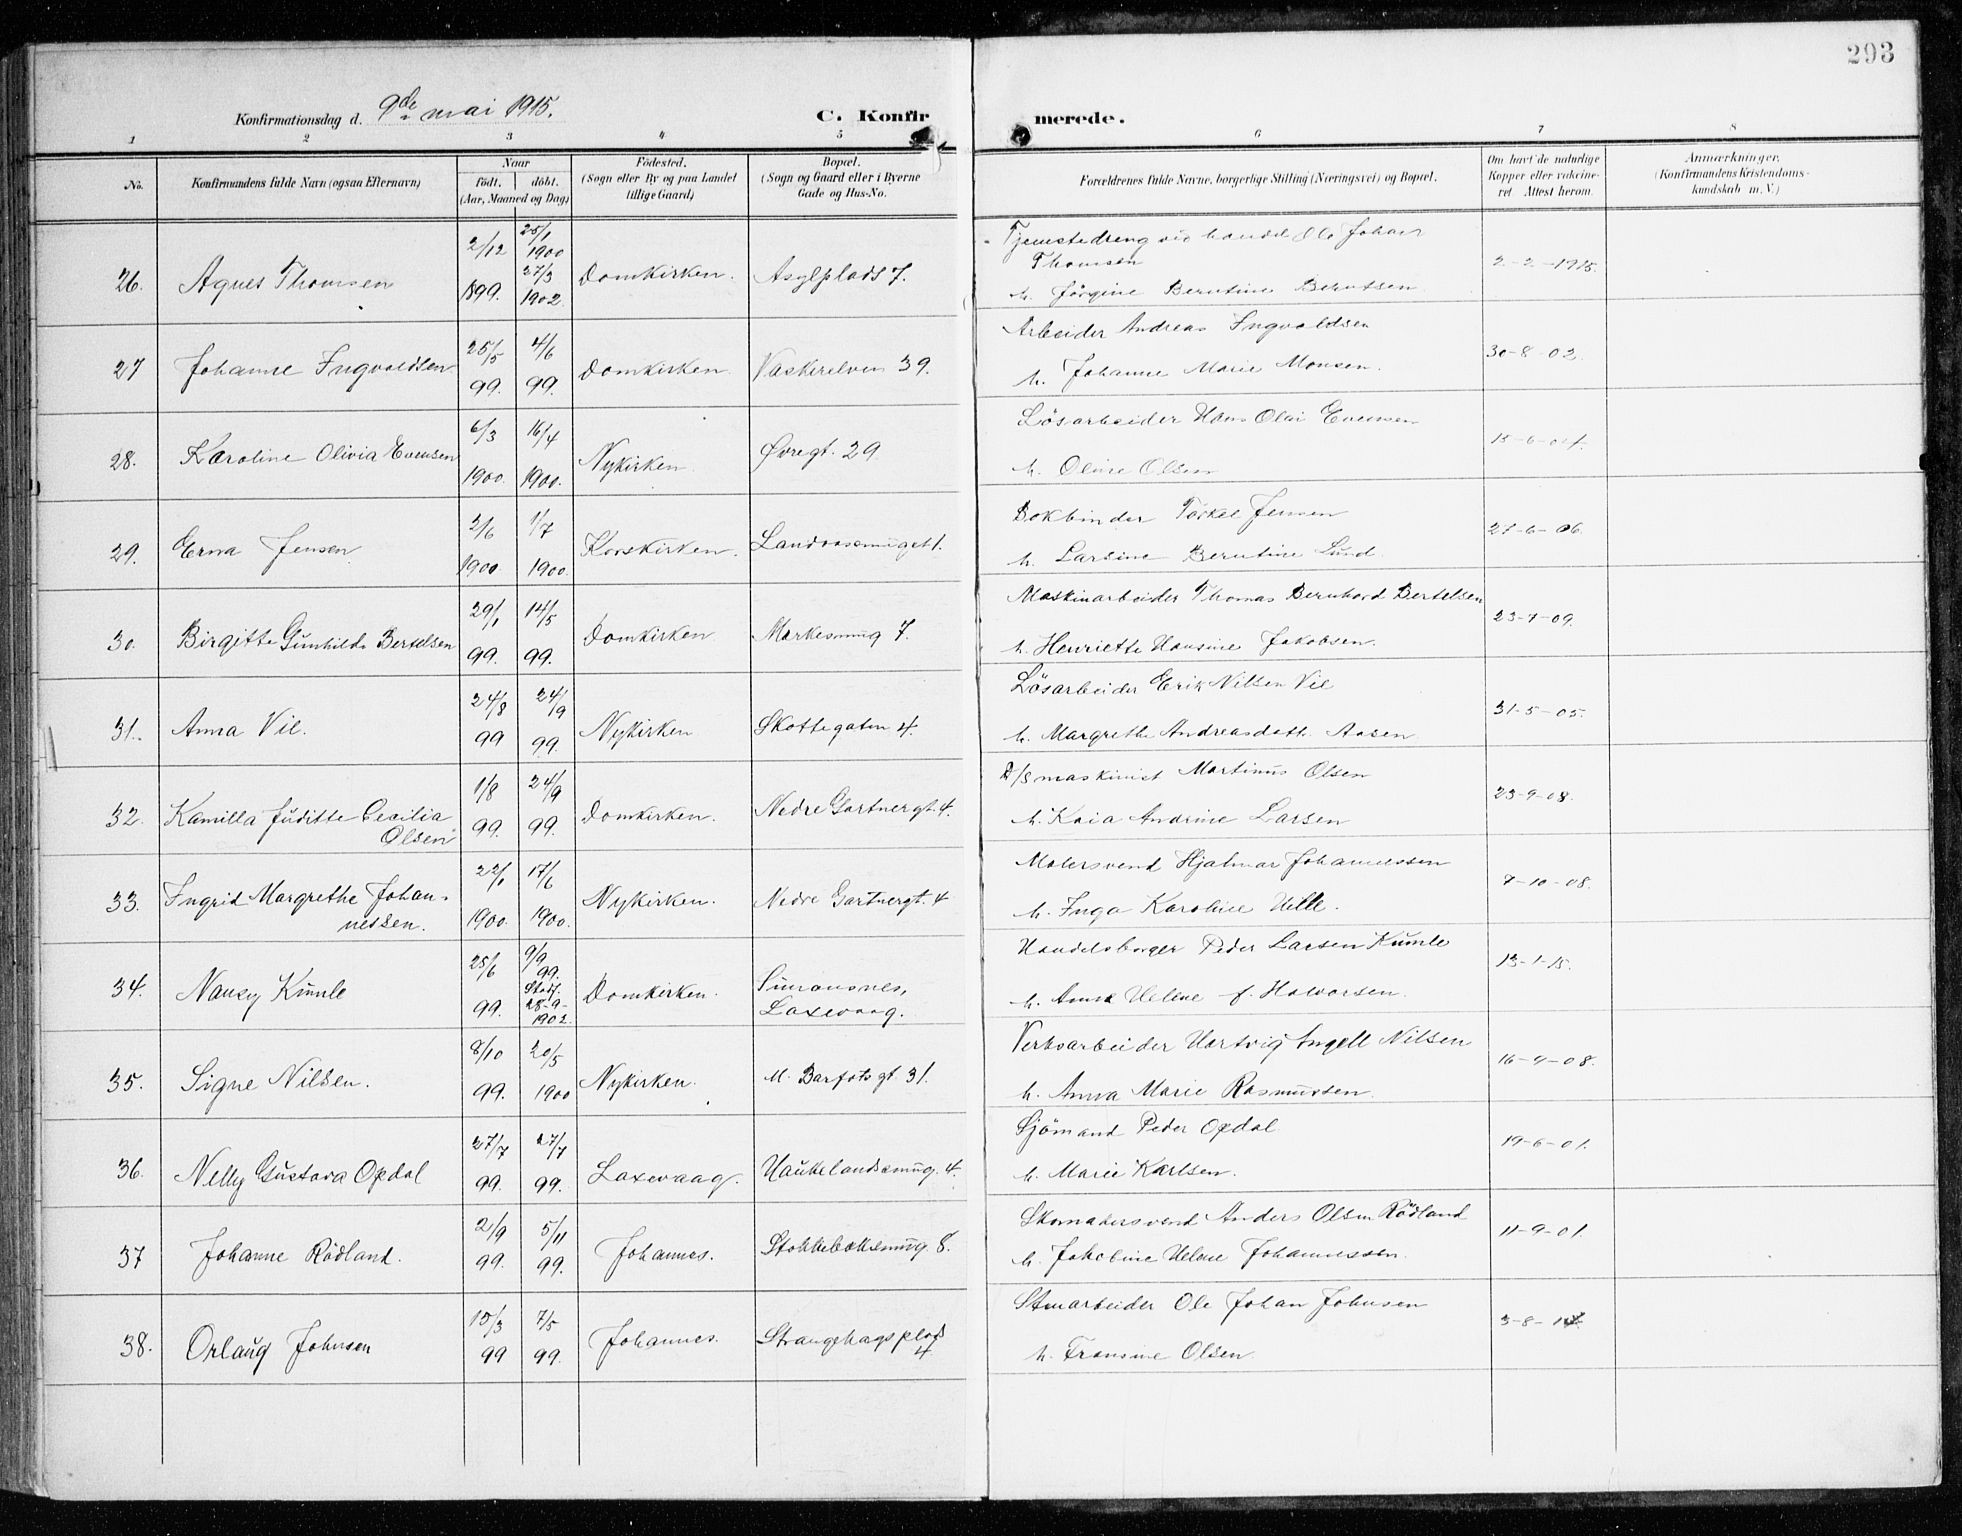 293
Konfirmationsdag d. 9de mai 1915.
C. Konfir merede.
1 2 3 4 5 6 7 8
No.
Konfirmandens fulde Navn (ogsaa Efternavn)
Naar
født. døbt.
(Aar, Maaned og Dag)
Fødested.
(Sogn eller By og paa Landet
tillige Gaard)
Bopæl.
(Sogn og Gaard eller i Byerne
Gade og Hus-No.
Forældrenes fulde Navne, borgerlige Stilling (Næringsvei) og Bopæl.
Om havt de naturlige
Kopper eller vakcine-
ret Attest herom.
Anmærkninger.
(Konfirmandens Kristendoms-
kundskab m. V.)
26. Agnes Thomsen 2/12 1899. 25/1 1900 27/3 1902. Domkirken. Asylplads 7.
Tjenestedreng ved handel Ole Johan
Thomsen
h. Jörgine Berntine Berntsen. 2-2-1915.
27 Johanne Ingvaldsen 25/5 99. 4/6 99. Domkirken. Vaskerelven 39.
Arbeider Andreas Ingvaldsen
h. Johanne Marie Monsen. 30-8-02.
28. Karoline Olivia Evensen 6/3 1900. 16/4 1900. Nykirken. Øvregt. 29
Lösarbeider Hans Olai Evensen
h. Oline Olsen
29. Erna Jensen 2/6 1900 1/7 1900. Korskirken.
Bokbinder Torkel Jensen
h. Larsine Berntine Lund. 27-6-06.
30. Birgitte Gunhilda Bertelsen 29/1 99. 14/5 99. Domkirken Markesmug 7.
Maskinarbeider Thomas Bernhard Bertelsen
h. Henriette Hansine Jakobsen. 23-7-09.
31. Anna Vil. 24/8 99 24/9 99. Nykirken Skottegaten 4.
Lösarbeider Erik Nilsen Vil
h. Margrethe Andreasdatt. Aasen 31-5-05.
32. Kamilla Juditte Cecilia
Olsen 1/8 99. 24/9 99. Domkirken. Nedre Gartnergt. 4.
D/S maskinist Martinus Olsen
h. Kaia Andrine Larsen 23-9-08.
33. Ingrid Margrethe Johan-
nessen. 22/1 1900. 17/6 1900. Nykirken. Nedre Gartnergt. 4
Malersvend Hjalmar Johannessen
h. Inga Karoline Helle. 7-10-08.
34. Nancy Kumle 25/6 99. 9/9 99. Stadf. 28-9-1902. Domkirken. Simonsnes,
Laxevaag.
Handelsborger Peder Larsen Kumle
h. Anna Helene f. Halvorsen. 13-1-15.
35. Signe Nilsen. 8/10 99. 20/5 1900 Nykirken. M. Barfots gt. 31.
Verksarbeider Hartvig Angell Nilsen
h. Anna Marie Rasmussen. 16-9-08.
36. Nelly Gustava Opdal 27/7 99. 27/7 99. Laxevaag. Haukelandsmug. 4.
Sjömand Peder Opdal
h. Marie Karlsen. 19-6-01.
37 Johanne Rödland. 2/9 99. 5/11 99. Johannes. 8.
Skomakersvend Anders Olsen Rödland
h. Jakobine Helene Johannessen. 11-9-01.
38. Orlaug Johnsen 15/3 99 7/5 99. Johannes. Strangehagsplads
4.
Stenarbeider Ole Johan Johnsen
h. Fransine Olsen.